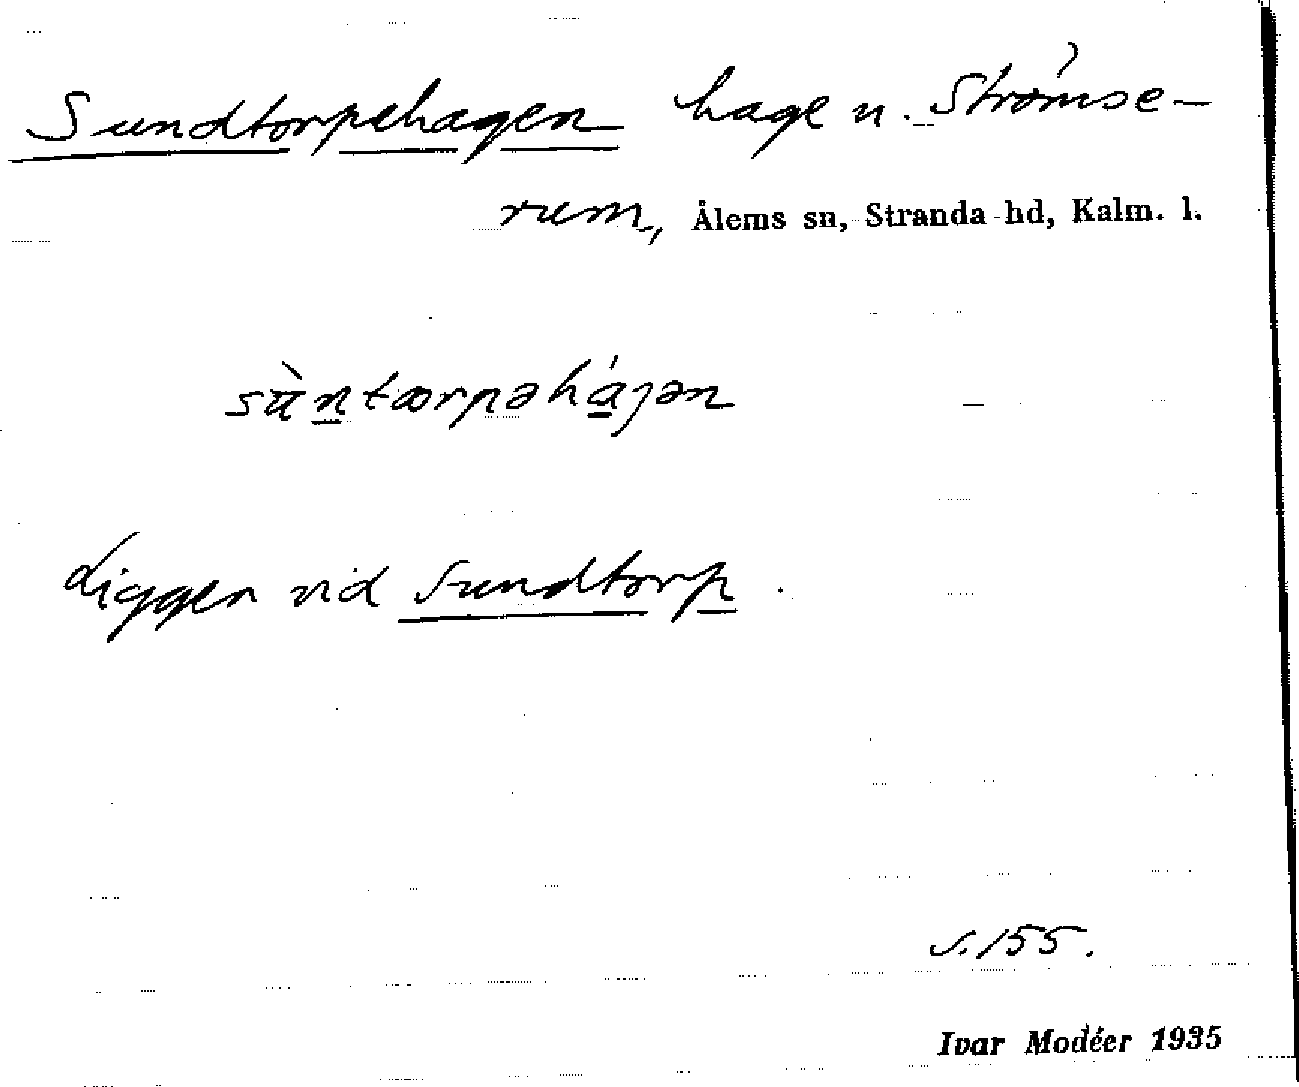 Sundtorpehagen hage n. Strömse-
rum, Ålems sn, Stranda hd, Kalm. l.
sùntærpəhájən
Ligger vid Sundtorp.
s. 155.
Ivar Modéer 1935